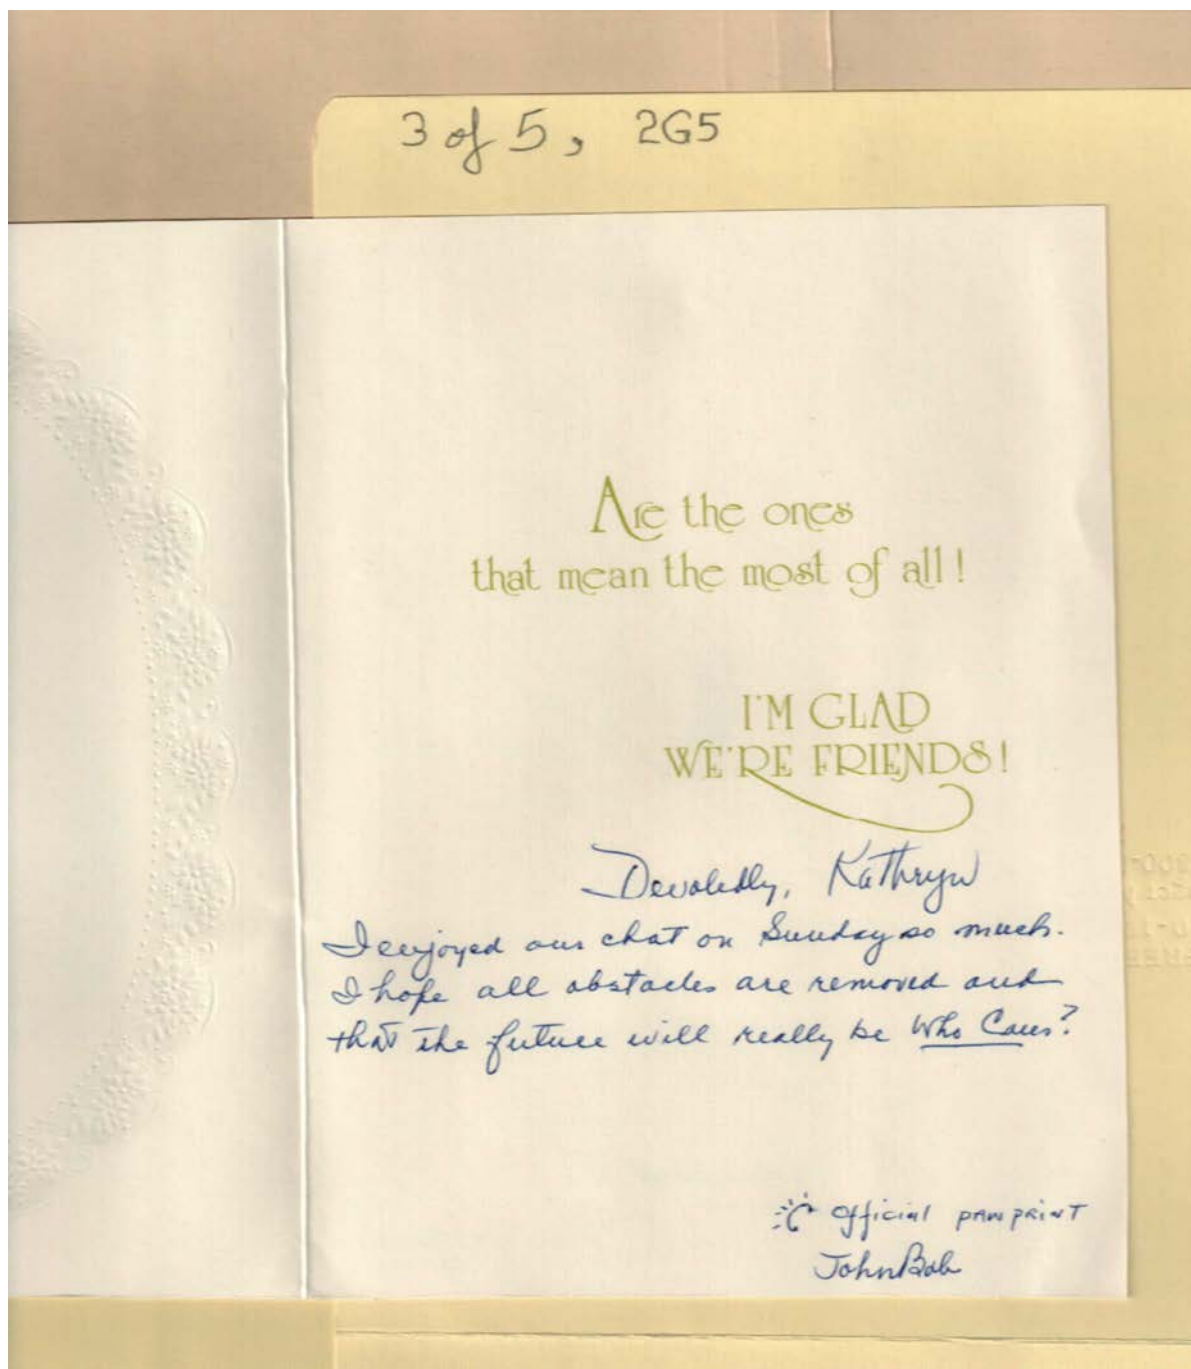 3 of 5, 2G5
Are the ones
that mean the most of all!
I'M GLAD
WE'RE FRIENDS!
Devotedly, Kathryn
I enjoyed our chat on Sunday so much.
I hope all obstacles are removed and
that the future will really be Who Cares?
Official pawprint
JohnBob